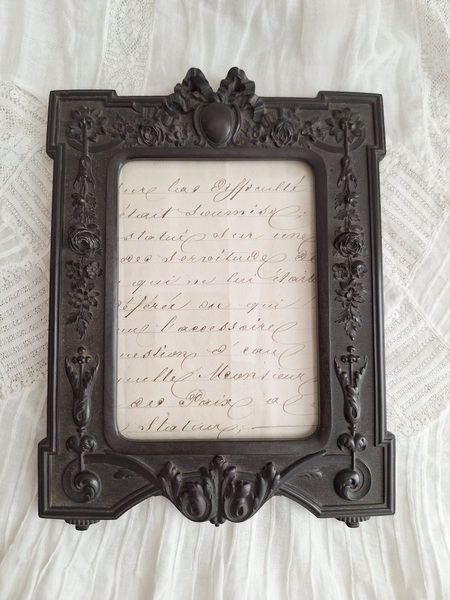 une difficulté
était soumise,
statué sur une
des servitude de
qui ne lui était
éférée ou qui
l'accessoire
uestion d'eau
quelle Monsieur
de Paix a
Statuer;